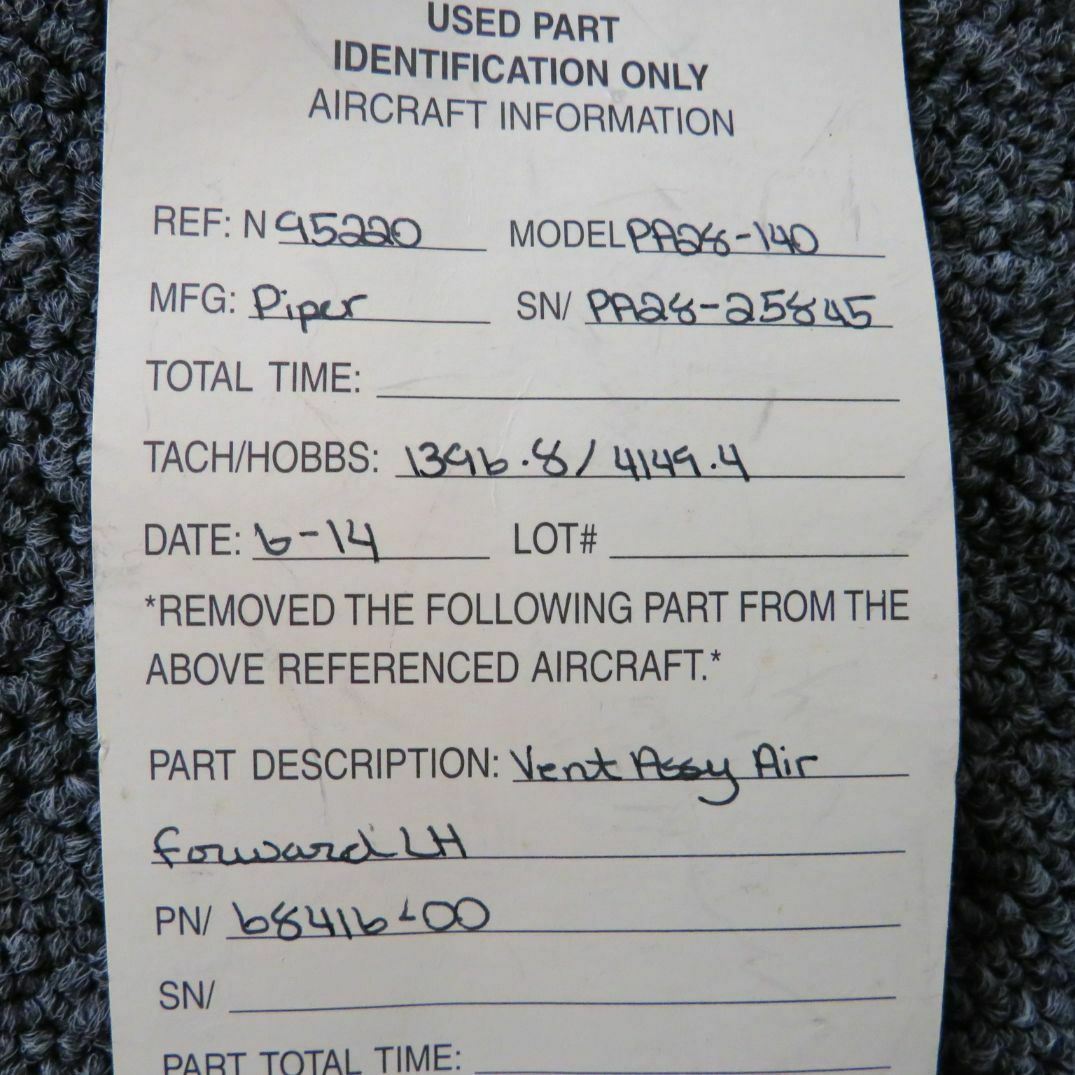 USED PART
IDENTIFICATION ONLY
AIRCRAFT INFORMATION
REF: N 95220 MODEL PA28-140
MFG: Piper SN/ PA28-25845
TOTAL TIME:
TACH/HOBBS: 1396.8 / 4149.4
DATE: 6-14 LOT#
*REMOVED THE FOLLOWING PART FROM THE
ABOVE REFERENCED AIRCRAFT.*
PART DESCRIPTION: Vent Assy Air
forward LH
PN/ 68416-00
SN/
PART TOTAL TIME: